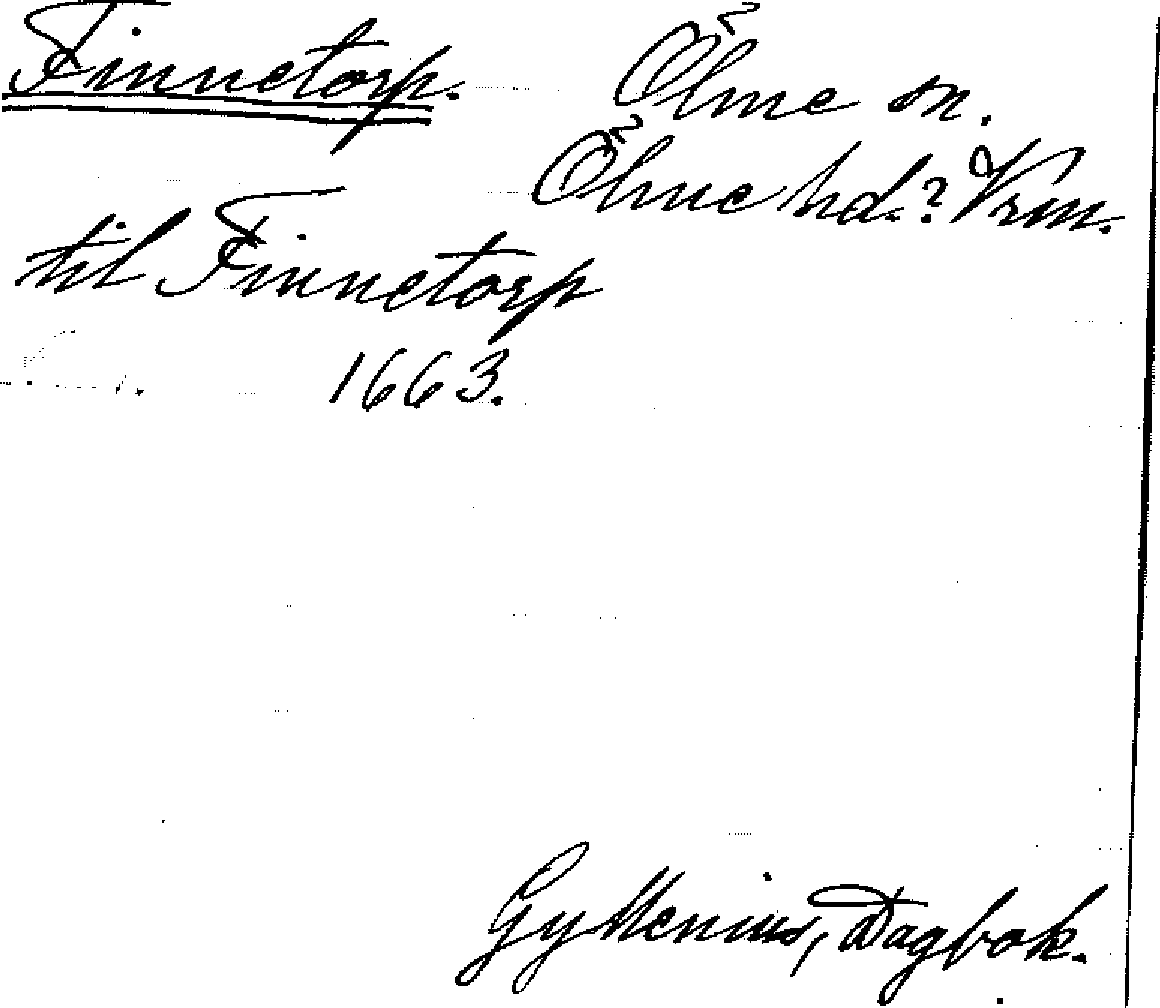 Finnetorp. Ölme sn.
Ölme hd.? Vrm.
til Finnetorp
1663.
Gyllenius, Dagbok.